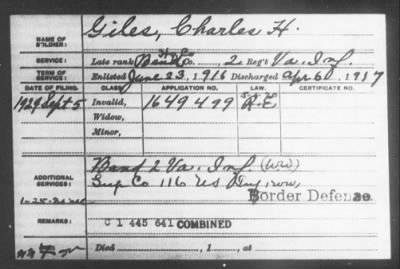 NAME OF SOLDIER: Giles, Charles H.
SERVICE: Late rank Co. 2 Reg't Va. Inf.
TERM OF SERVICE: Enlisted June 23, 1916 Discharged Apr 1917
DATE OF FILING. CLASS. APPLICATION NO. LAW. CERTIFICATE NO.
1929 Sept 5 Invalid, 1649499
Widow,
Minor,
ADDITIONAL SERVICES: Band 2 Va. Inf. (WW)
Sup Co 116 US Inf, WW,
Border Defense
REMARKS: C 1 445 641 COMBINED
Died , 1 , at